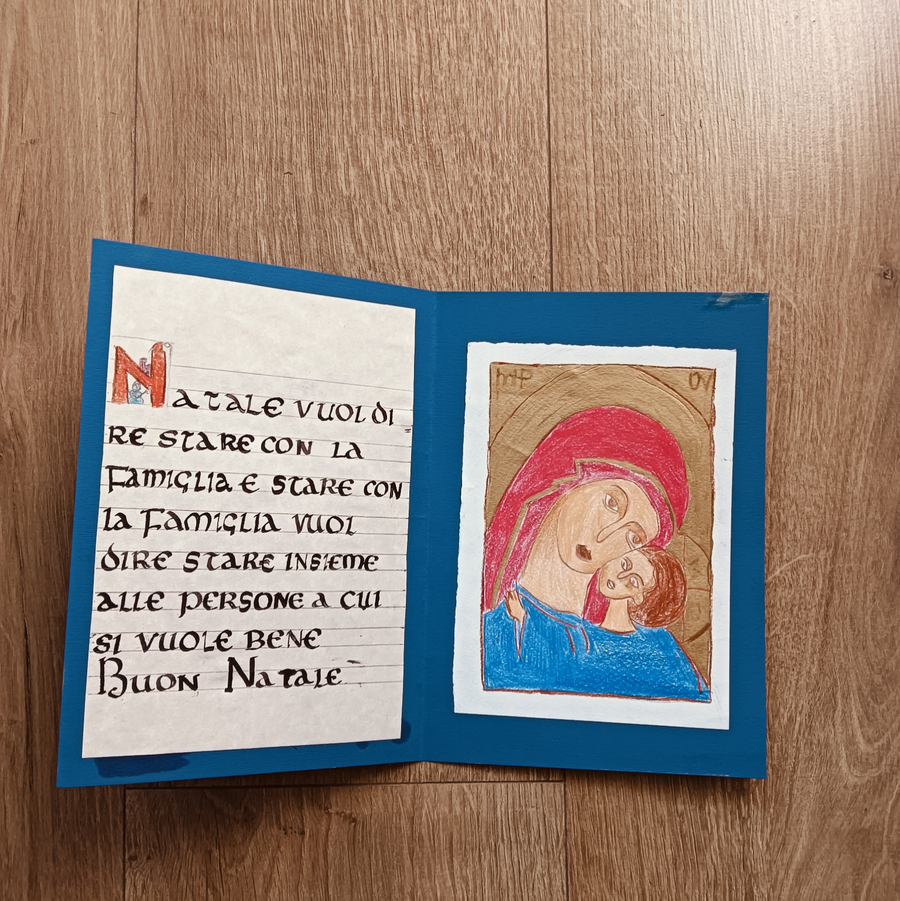 NATALE VUOL DI
RE STARE CON LA
FAMIGLIA E STARE CON
LA FAMIGLIA VUOL
DIRE STARE INSIEME
ALLE PERSONE A CUI
SI VUOLE BENE
BUON NATALE
MP
OV